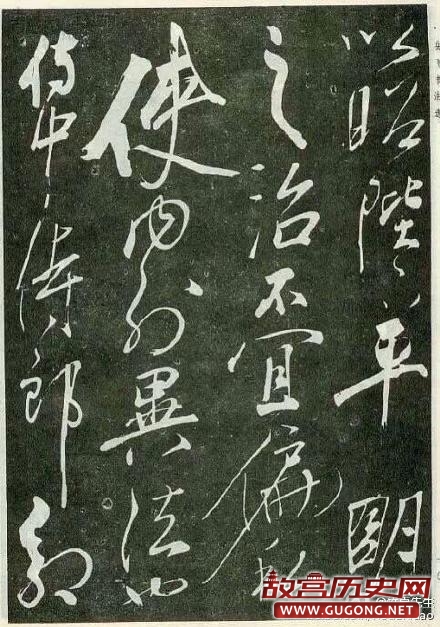 以昭陛下平明
之治不宜偏私
使內外異法也
侍中侍郎郭
故宫历史网
WWW.GUGONG.NET